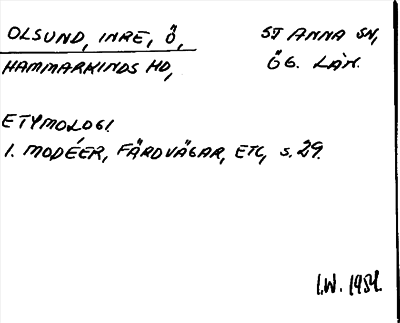 OLSUND, INRE, Ö, ST ANNA SN,
HAMMARKINDS HD, ÖG. LÄN.
ETYMOLOGI.
I. MODÉER, FÄRDVÄGAR, ETC, s. 29.
I.W. 1984.